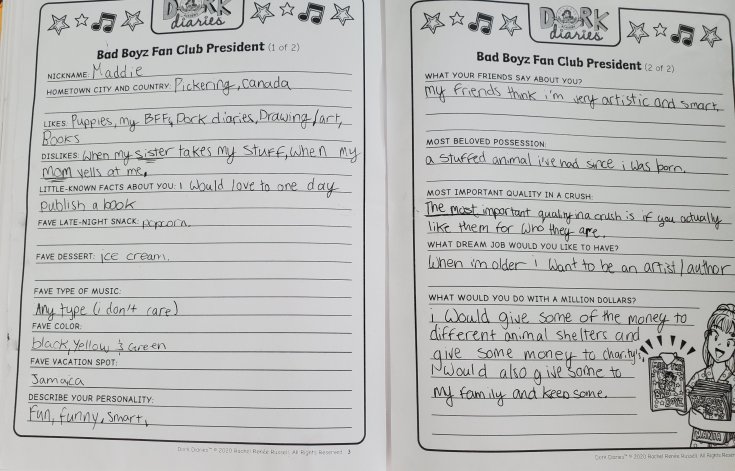 DORK
diaries
Bad Boyz Fan Club President (1 of 2)
NICKNAME: Maddie
HOMETOWN CITY AND COUNTRY: Pickering, Canada
LIKES: Puppies, my BFFs, Dork diaries, Drawing/art,
Books
DISLIKES: When my sister takes my stuff, when my
mom yells at me,
LITTLE-KNOWN FACTS ABOUT YOU: I would love to one day
publish a book
FAVE LATE-NIGHT SNACK: popcorn.
FAVE DESSERT: Ice cream.
FAVE TYPE OF MUSIC:
Any type (i don't care)
FAVE COLOR:
black, Yellow & Green
FAVE VACATION SPOT:
Jamaca
DESCRIBE YOUR PERSONALITY:
Fun, funny, smart,
Dork Diaries™ © 2020 Rachel Renée Russell. All Rights Reserved. 3
DORK
diaries
Bad Boyz Fan Club President (2 of 2)
WHAT YOUR FRIENDS SAY ABOUT YOU?
my friends think i'm very artistic and smart.
MOST BELOVED POSSESSION:
a stuffed animal i've had since i was born.
MOST IMPORTANT QUALITY IN A CRUSH:
The most important quality in a crush is if you actually
like them for who they are.
WHAT DREAM JOB WOULD YOU LIKE TO HAVE?
When i'm older I want to be an artist/author
WHAT WOULD YOU DO WITH A MILLION DOLLARS?
i would give some of the money to
different animal shelters and
give some money to charity's,
I would also give some to
my family and keep some.
MANIA
Dork Diaries™ © 2020 Rachel Renée Russell. All Rights Reser